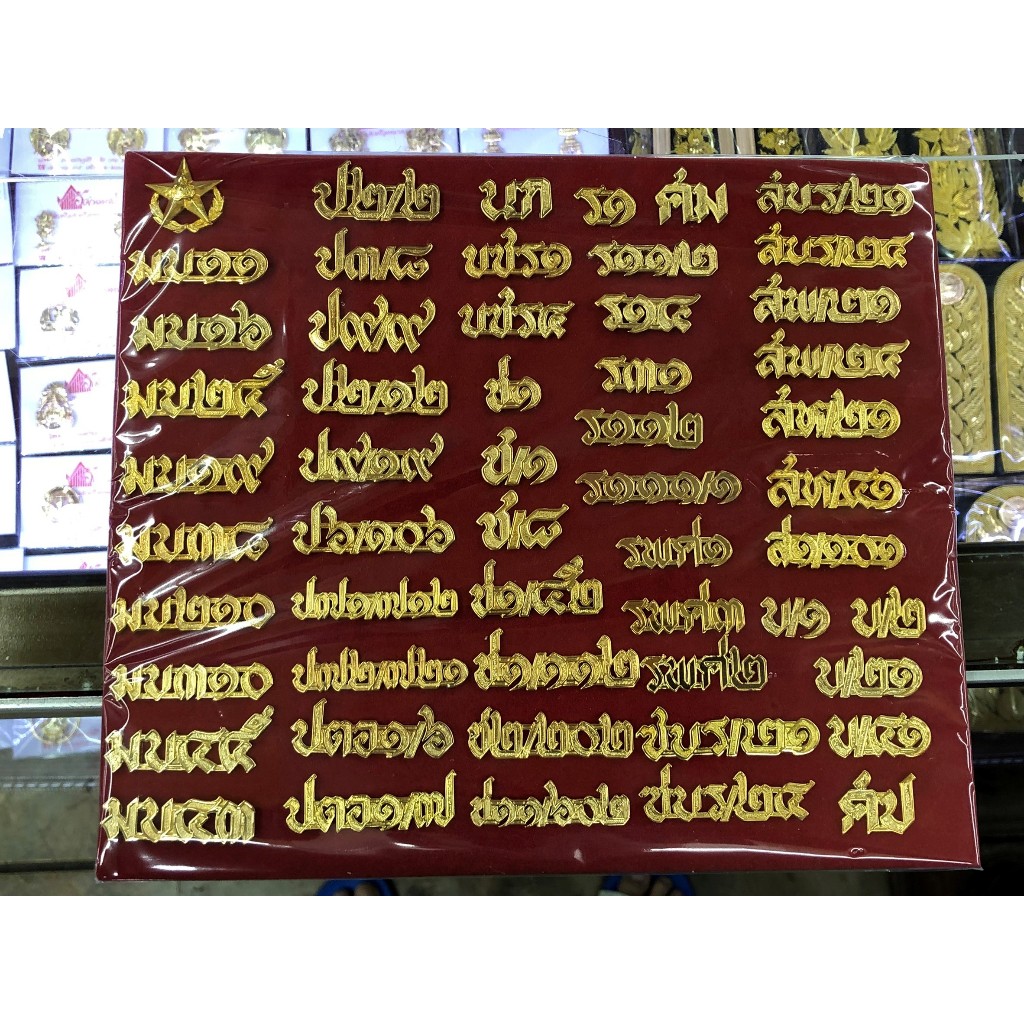 ป๒/๒ บก ร๑ ศม สบร/๒๑
มบ๑๑ ป๓/๘ บชร๑ ร๑๑/๒ สบร/๒๔
มบ๑๖ ป๙/๙ บชร๔ ร๑๔ สพ/๒๑
มบ๒๕ ป๒/๑๒ ช๑ ร๓๑ สพ/๒๔
มบ๑๙ ป๙/๑๙ ช/๑ ร๑๑๒ สท/๒๑
มบ๓๘ ป๖/๑๐๖ ช/๘ ร๑๑๑/๑ สท/๔๑
มบ๒๑๐ ป๗๑/๗๑๒ ช๑/๕๒ รพศ๑ ส๑/๑๐๑
มบ๓๑๐ ป๗๒/๗๒๑ ช๑/๑๑๒ รพศ๓ บ/๑ บ/๒
มบ๔๕ ปตอ๑/๖ ช๒/๒๐๒ รพศ๒ บ/๒๑
มบ๔๓ ปตอ๑/๗ ช๑๑/๖๐๒ ชบร/๒๑ บ/๔๑
ชบร/๒๔ ศป